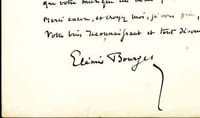 que votre musique de nous
Merci encore, et croyez-moi, je vous prie,
Votre bien reconnaissant et tout dévoué
Elémir Bourges